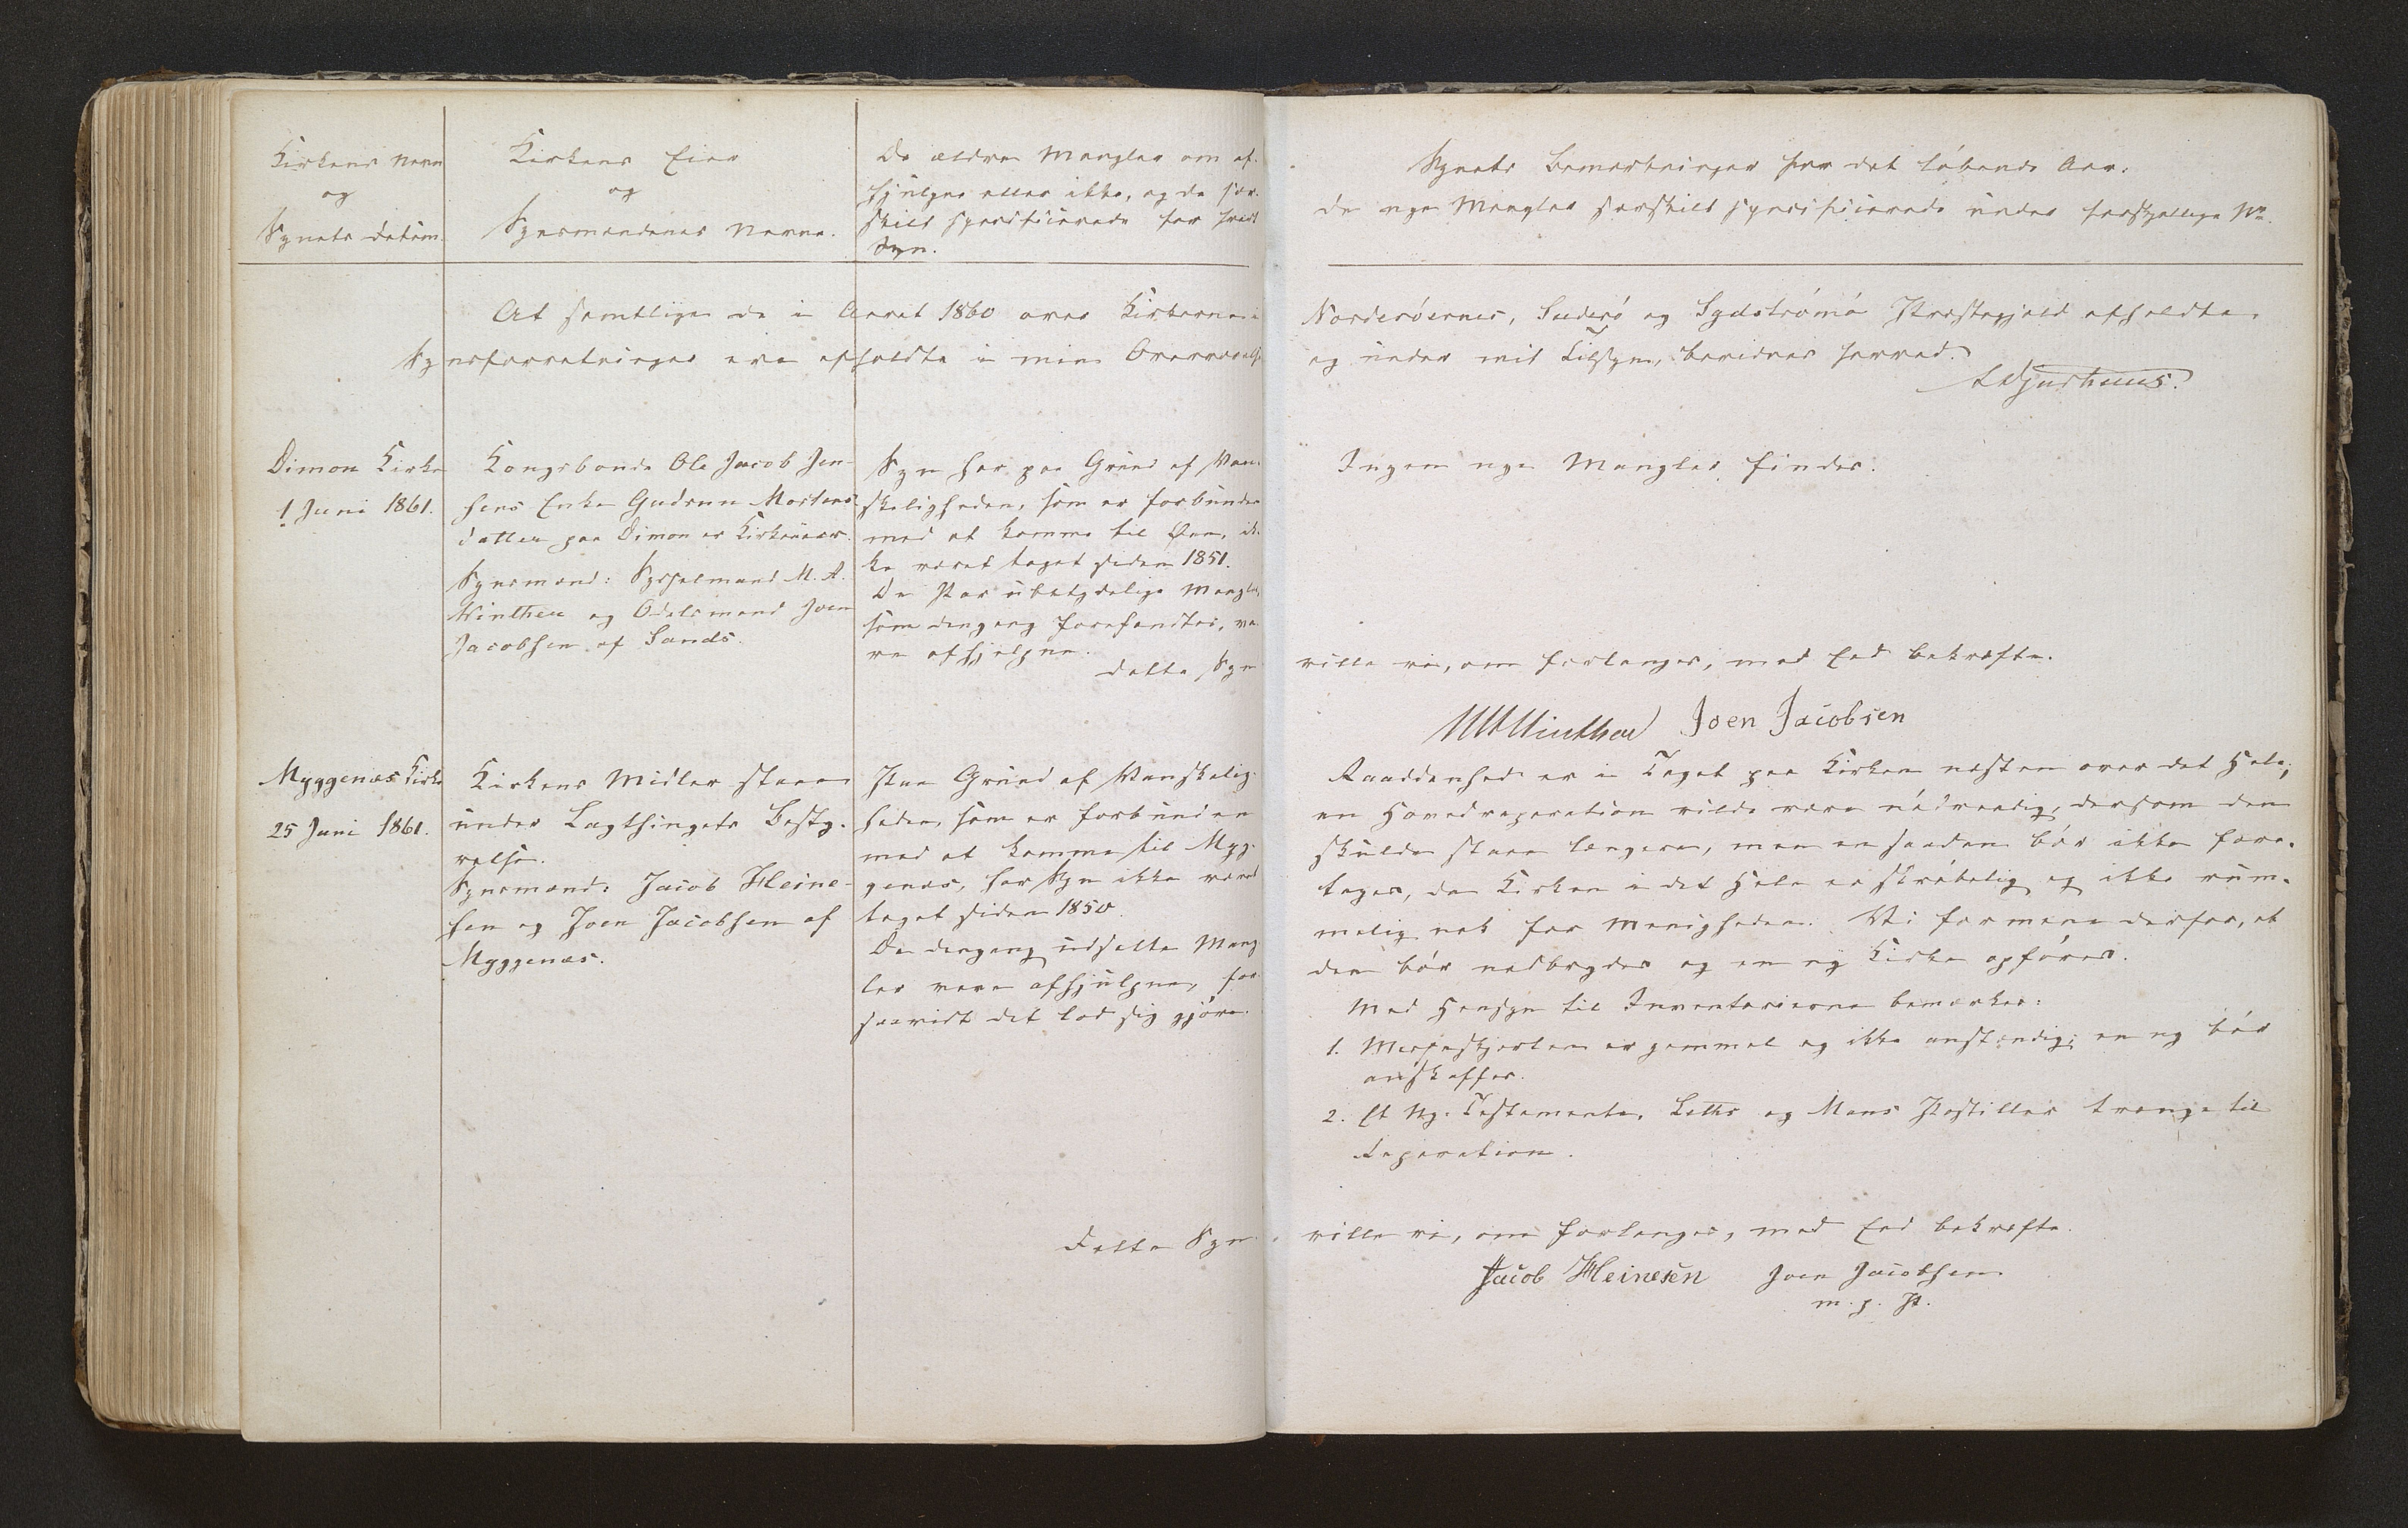 Kirkens Navn
og
Synets Datum.
Kirkens Eier
og
Synsmændenes Navne.
De ældre Mangler om af-
hjulpne eller ikke, og da sær-
skilt specificerede for hvert
Syn.
Synets Bemærkninger for det løbende Aar.
de nye Mangler særskilt specificerede under forskjellige No.
At samtlige de i Aaret 1860 over Kirkerne i
Norderøernes, Suderø og Sydstrømø Præstegjæld afholdte
Synsforretninger ere afholdte i min Overværelse
og under mit Tilsyn, bevidnes herved.
Dimon Kirke
1 Juni 1861.
Kongsbonde Ole Jacob Jen-
sens Enke Gudrun Mortens-
datter paa Dimon er Kirkeværr.
Synsmænd: Sysselmand M. A.
Winther og Odelsmand Joen
Jacobsen af Sands.
Syn har paa Grund af Van-
skeligheden, som er forbunden
med at komme til Øen, ik-
ke været taget siden 1851.
De Par ubetydelige Mangler,
som dengang forefandtes, va-
re afhjulpne.
Dette Syn
Ingen nye Mangler findes.
ville vi, om forlanges, med Eed bekræfte.
MAWinther Joen Jacobsen
Myggenæs Kirke
25 Juni 1861.
Kirkens Midler staae
under Lagthingets Besty-
relse.
Synsmænd: Jacob Heine-
sen og Joen Jacobsen af
Myggenæs.
Paa Grund af Vanskelig-
heden, som er forbunden
med at komme til Myg-
genæs, har Syn ikke været
taget siden 1850.
De dengang udsatte Mang-
ler vare afhjulpne, for
saavidt det lod sig gjøre.
Dette Syn
Raaddenhed er i Taget paa Kirken næsten over det Hele;
en Hovedreparation vilde være nødvendig, dersom den
skulde staae længere, men en saadan bør ikke fore-
tages, da Kirken i det Hele er skrøbelig og ikke rum-
melig nok for Menigheden. Vi formene derfor, at
den bør nedbrydes og en ny Kirke opføres.
Med Hensyn til Inventarierne bemærkes:
1. Messeskjorten er gammel og ikke anstændig; en ny bør
anskaffes.
2. Et Ny-Testamente, Leths og Mans Postiller trænge til
Reparation.
ville vi, om forlanges, med Eed bekræfte.
Jacob Heinesen Joen Jacobsen
m. p. P.